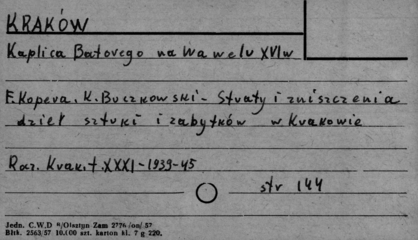 KRAKÓW
Kaplica Batorego na Wawelu XVIw
F. Kopera, K. Buczkowski - Straty i zniszczenia
dzieł sztuki i zabytków w Krakowie
Rocz. Krak. t. XXXI - 1939-45
str 144
Jedn. C.W.D "/Olsztyn Zam 2776/on/57
Bltk. 2563/57 10.000 szt. karton kl. 7 g 220.